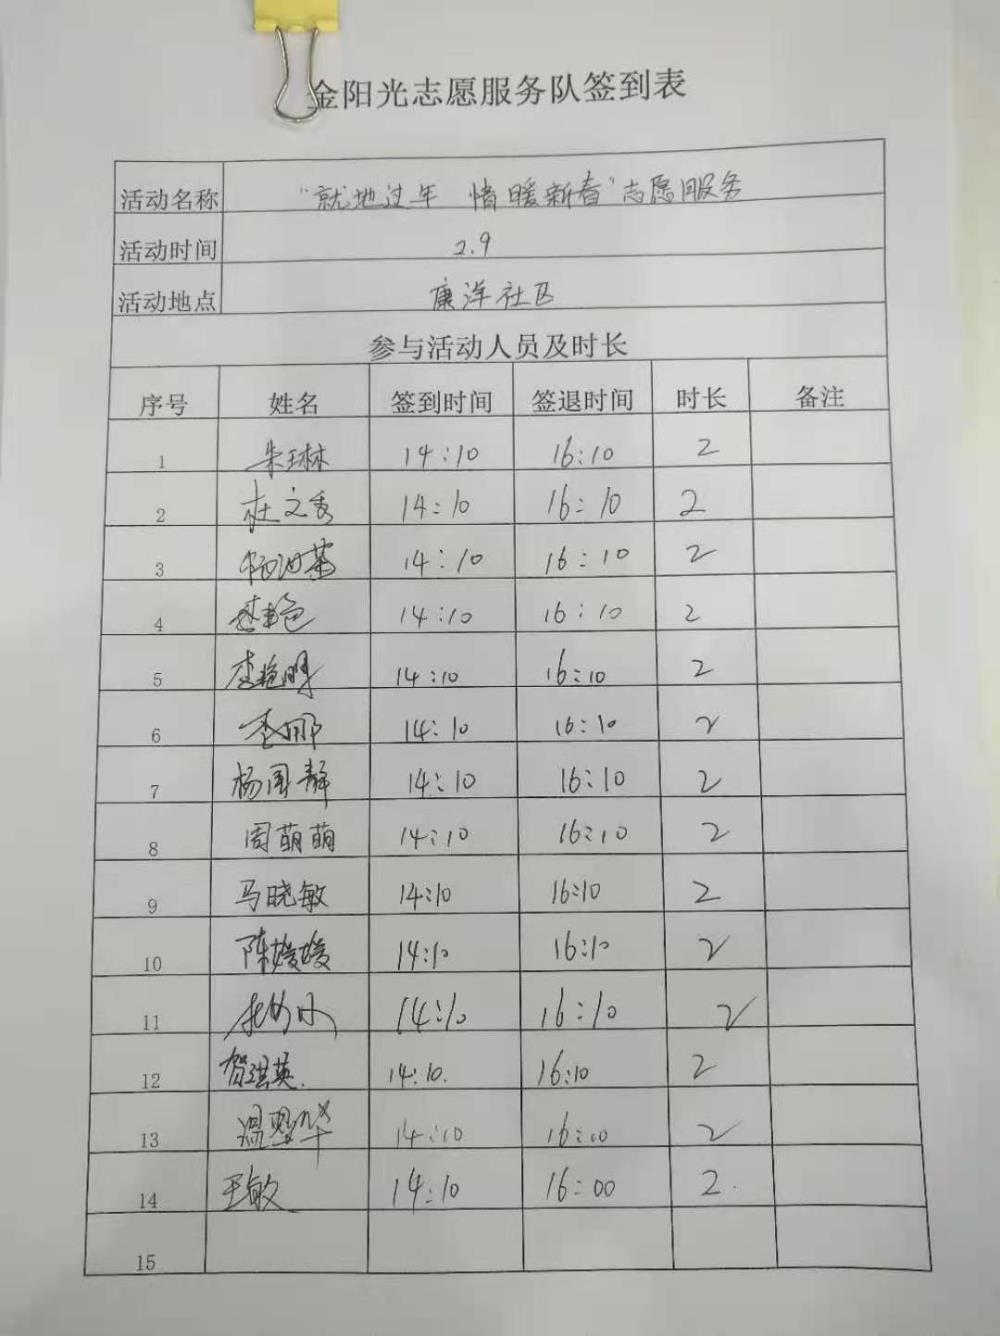 金阳光志愿服务队签到表
活动名称 "就地过年 情暖新春"志愿服务
活动时间 2.9
活动地点 康洋社区
参与活动人员及时长
序号 姓名 签到时间 签退时间 时长 备注
1 朱琳 14:10 16:10 2
2 杜文秀 14:10 16:10 2
3 14:10 16:10 2
4 14:10 16:10 2
5 李艳明 14:10 16:10 2
6 李娜 14:10 16:10 2
7 杨国静 14:10 16:10 2
8 周萌萌 14:10 16:10 2
9 马晓敏 14:10 16:10 2
10 陈媛媛 14:10 16:10 2
11 14:10 16:10 2
12 贺淇英. 14:10. 16:10 2
13 14:10 16:00 2
14 王敏 14:10 16:00 2.
15